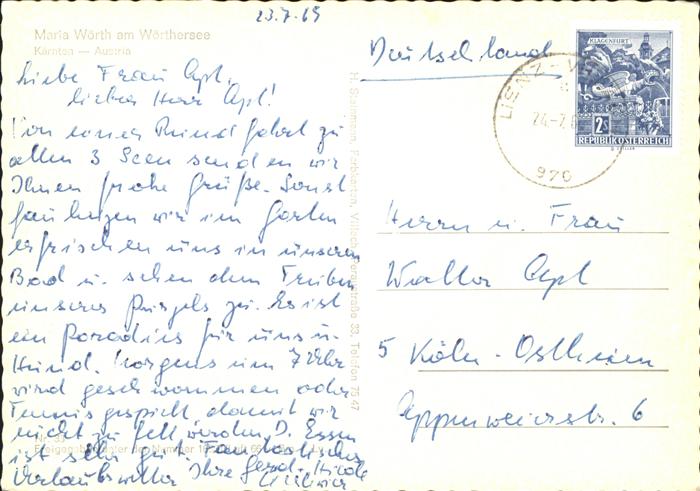 23.7.69
Maria Wörth am Wörthersee
Kärnten — Austria
Liebe Frau Apl,
lieber Herr Apl!
Von einer Rundfahrt zu
allen 3 Seen senden wir
Ihnen frohe Grüße. Sonst
faulenzen wir im Garten
erfrischen uns in unserem
Bad u. sehen dem Treiben
unseres Purzels zu. Es ist
ein Paradies für uns u.
Hund. Morgens um 7 Uhr
wird geschwommen oder
Tennis gespielt, damit wir
nicht zu fett werden. D. Essen
ist sehr gut. Fantastisches
Urlaubswetter Ihre Gerd
H. Stammann, Farbkarten, Villach, 33, Telefon 75 47
Nr. 33
Freigegeben unter der Nummer
Deutschland
LIENZ
24-7
970
KLAGENFURT
2S
REPUBLIK ÖSTERREICH
Herrn u. Frau
Walter Apl
5 Köln-Ostheim
Appenweierstr. 6